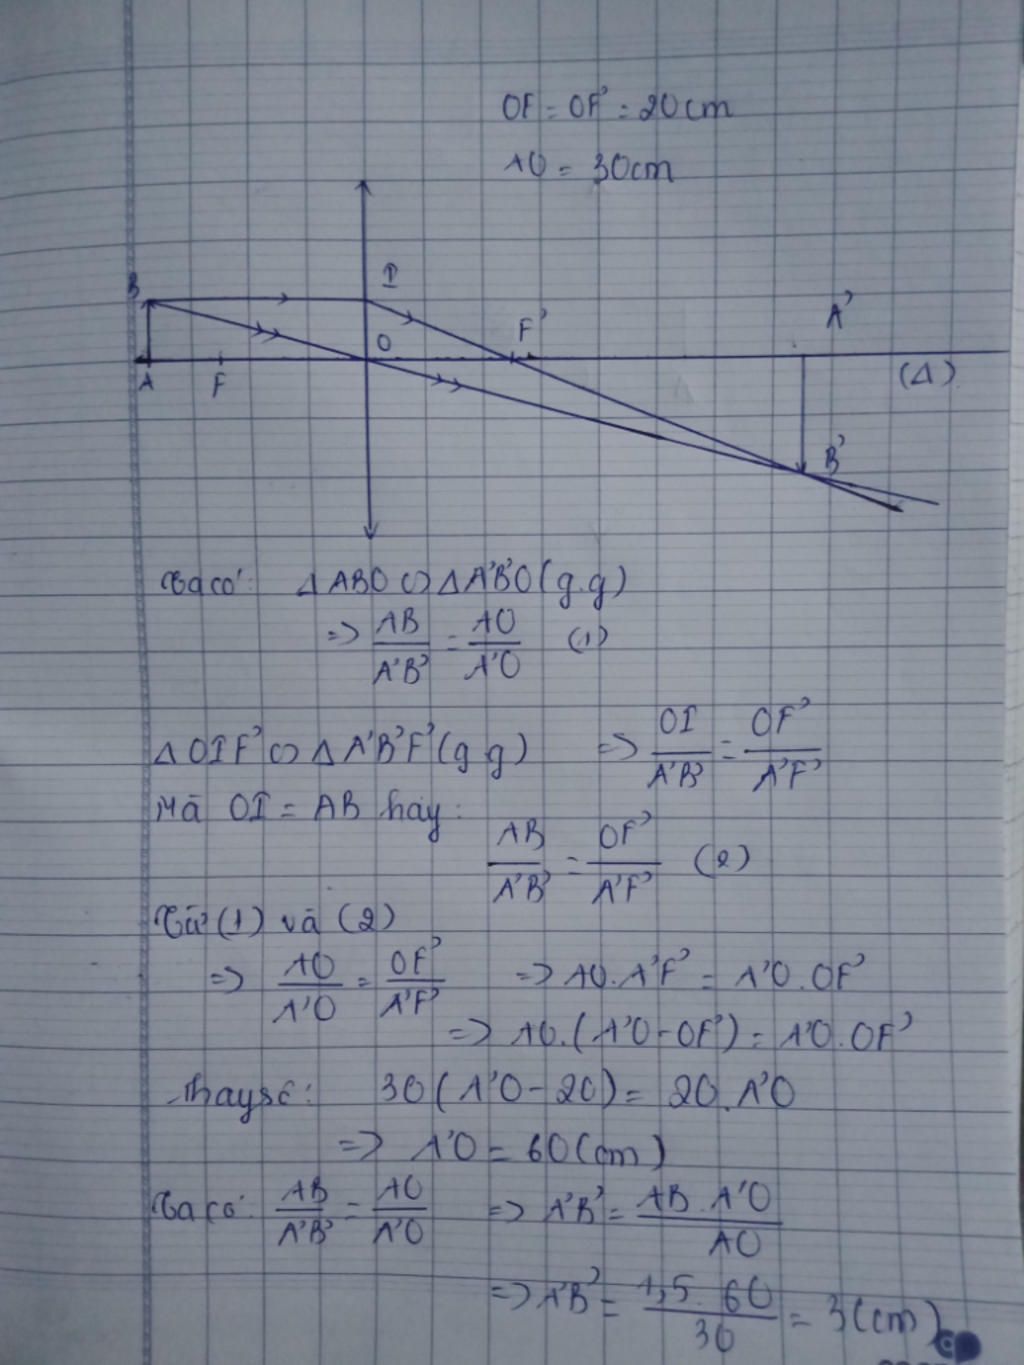 OF = OF' = 20cm
AO = 30cm
B
I
A'
F'
O
A
F
(Δ)
B'
Ta có: ΔABO ∽ ΔA'B'O (g.g)
=> AB/A'B' = AO/A'O (1)
ΔOIF' ∽ ΔA'B'F' (g g) => OI/A'B' = OF'/A'F'
Mà OI = AB hay:
AB/A'B' = OF'/A'F' (2)
Từ (1) và (2)
=> AO/A'O = OF'/A'F' => AO.A'F' = A'O.OF'
=> AO.(A'O-OF') = A'O.OF'
Thay số: 30(A'O-20) = 20.A'O
=> A'O = 60(cm)
Ta có: AB/A'B' = AO/A'O => A'B' = AB.A'O/AO
=> A'B' = 1,5.60/30 = 3(cm)